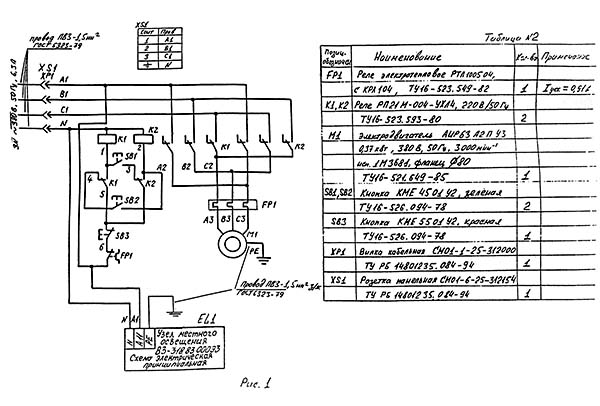 провод ПВ3-1,5мм²
ГОСТ 6323-79
XS1
Конт Пров
1 А1
2 В1
3 С1
N
3N ~380В, 50Гц, 6,3А
XS1
XP1
А1
В1
С1
N
К1
К2
1
2
SB1
3
4
К1
К2
5
SB2
SB3
6
FP1
А2
В2
С2
К1
К2
FP1
А3 В3 С3
М1
PE
Провод ПВ3-1,5мм² ж/з
ГОСТ 6323-79
N А1
EL1
N А1 PE
Узел местного
освещения
ВЗ-318 83 000ЭЗ
Схема электрическая
принципиальная
Рис. 1
Таблица №2
Позиц. обознач. Наименование Кол-во Примечан
FP1 Реле электротепловое РТЛ100504,
с КРЛ104, ТУ16-523.549-82 1 Iуст=0,91А
К1,К2 Реле РП21М-004-УХЛ4, 220В/50Гц
ТУ16-523.593-80 2
М1 Электродвигатель АИР63 А2П У3
0,37кВт, 380В, 50Гц, 3000мин⁻¹
исп. 1М3681, фланец Ф80
ТУ16-521.649-85 1
SB1,SB2 Кнопка КМЕ 4501 У2, зелёная
ТУ16-526.094-78 2
SB3 Кнопка КМЕ 5501 У2, красная
ТУ16-526.094-78 1
XP1 Вилка кабельная СНО1-1-25-312000
ТУ РБ 14801235.084-94 1
XS1 Розетка панельная СНО1-6-25-312154
ТУ РБ 14801235.084-94 1